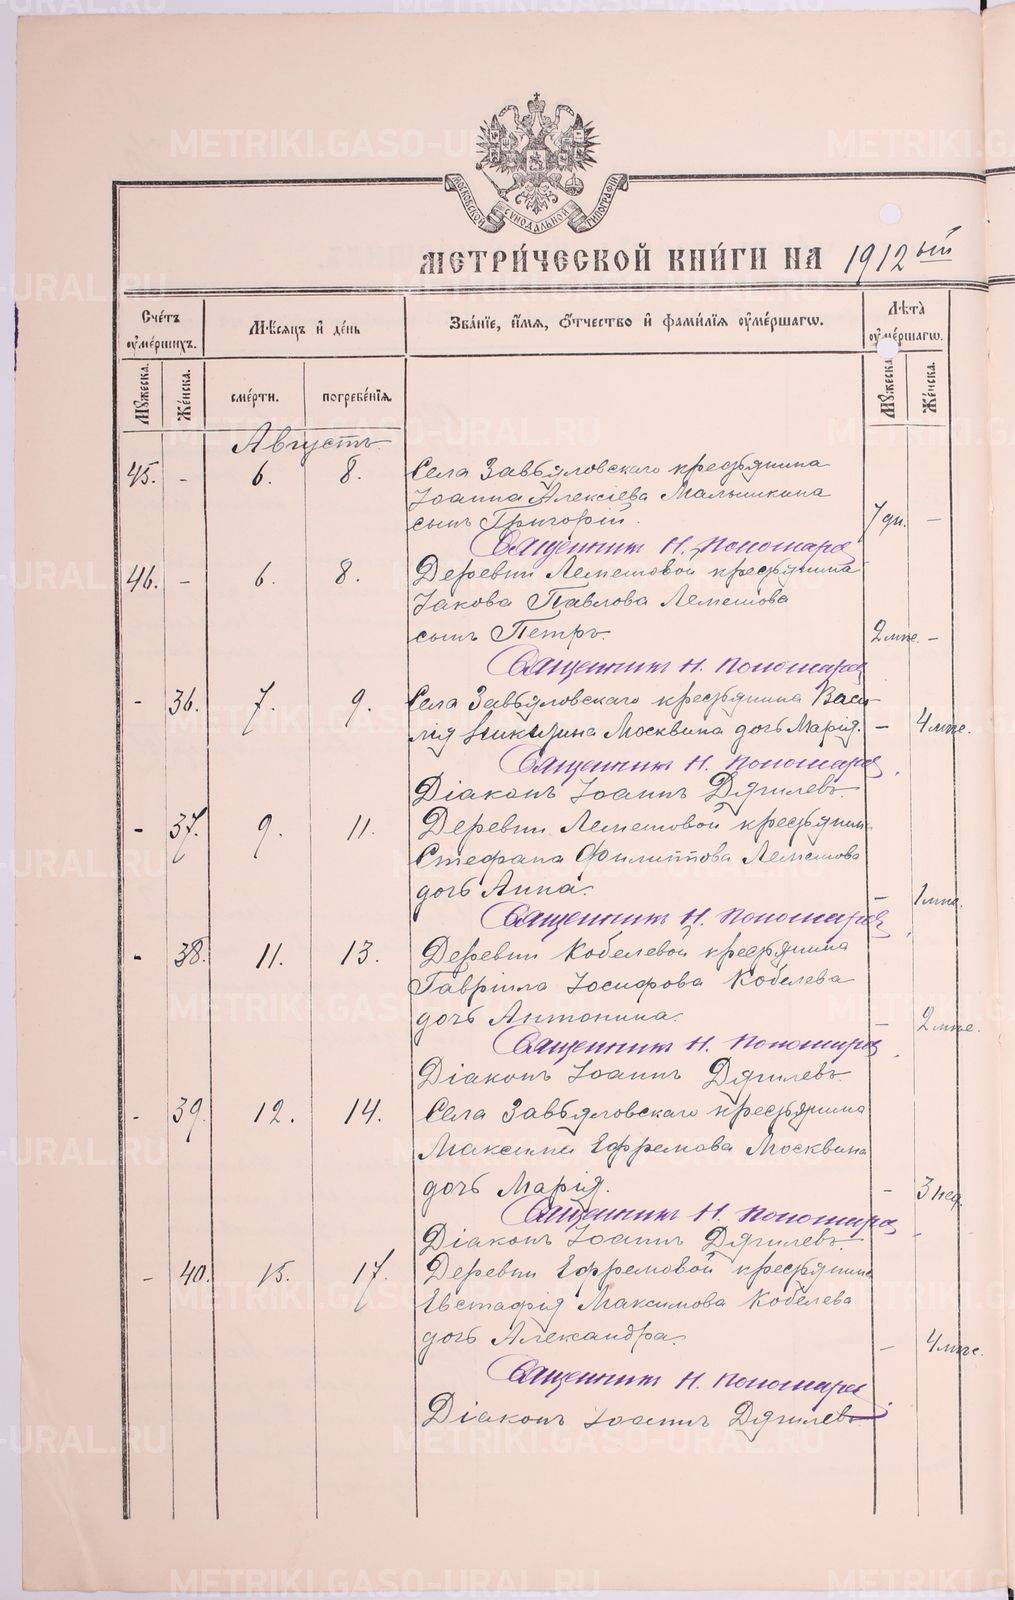 МОСКОВСКОЙ СѴНОДАЛЬНОЙ ТИПОГРАФІИ
МЕТРИ́ЧЕСКОЙ КНИ́ГИ НА 1912 ый
Сче́тъ оу҆ме́ршихъ.
Мѣ́сяцъ и҆ де́нь
Зва́нїе, и҆́мѧ, ѻ҆́тчество и҆ фами́лїѧ оу҆ме́ршагѡ.
Лѣ́та оу҆ме́ршагѡ.
Мꙋ́жеска.
Же́нска.
сме́рти.
погребе́нїѧ.
Мꙋ́жеска.
Же́нска.
Августъ
45. - 6. 8. Села Завьяловскаго крестьянина
Іоанна Алексіева Малышкина
сынъ Григорій. 7 дн. -
Священникъ Н. Пономарев
46. - 6. 8. Деревни Лемешовой крестьянина
Іакова Павлова Лемешова
сынъ Петръ. 2 мѣс. -
Священникъ Н. Пономарев
- 36. 7. 9. Села Завьяловскаго крестьянина Васи-
лія Никитина Москвина дочь Марія. - 4 мѣс.
Священникъ Н. Пономарев
Діаконъ Іоаннъ Дягилевъ
- 37. 9. 11. Деревни Лемешовой крестьянина
Стефана Филиппова Лемешова
дочь Анна. - 1 мѣс.
Священникъ Н. Пономарев
- 38. 11. 13. Деревни Кобелевой крестьянина
Гавріила Іосифова Кобелева
дочь Антонина. - 2 мѣс.
Священникъ Н. Пономарев
Діаконъ Іоаннъ Дягилевъ
- 39. 12. 14. Села Завьяловскаго крестьянина
Максима Ефремова Москвина
дочь Марія. - 3 нед.
Священникъ Н. Пономарев
Діаконъ Іоаннъ Дягилевъ
- 40. 15. 17. Деревни Ефремовой крестьянина
Евстафія Максимова Кобелева
дочь Александра. - 4 мѣс.
Священникъ Н. Пономарев
Діаконъ Іоаннъ Дягилевъ
METRIKI.GASO-URAL.RU